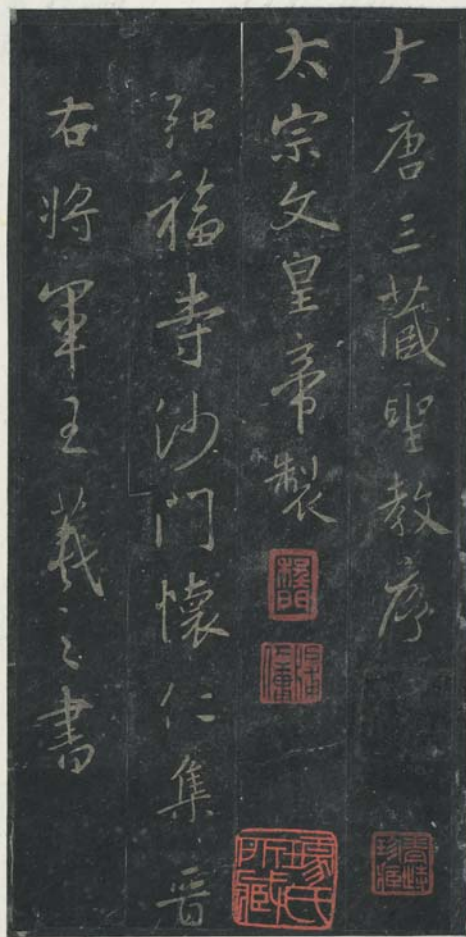 大唐三藏聖教序
太宗文皇帝製
弘福寺沙門懷仁集晉
右將軍王羲之書